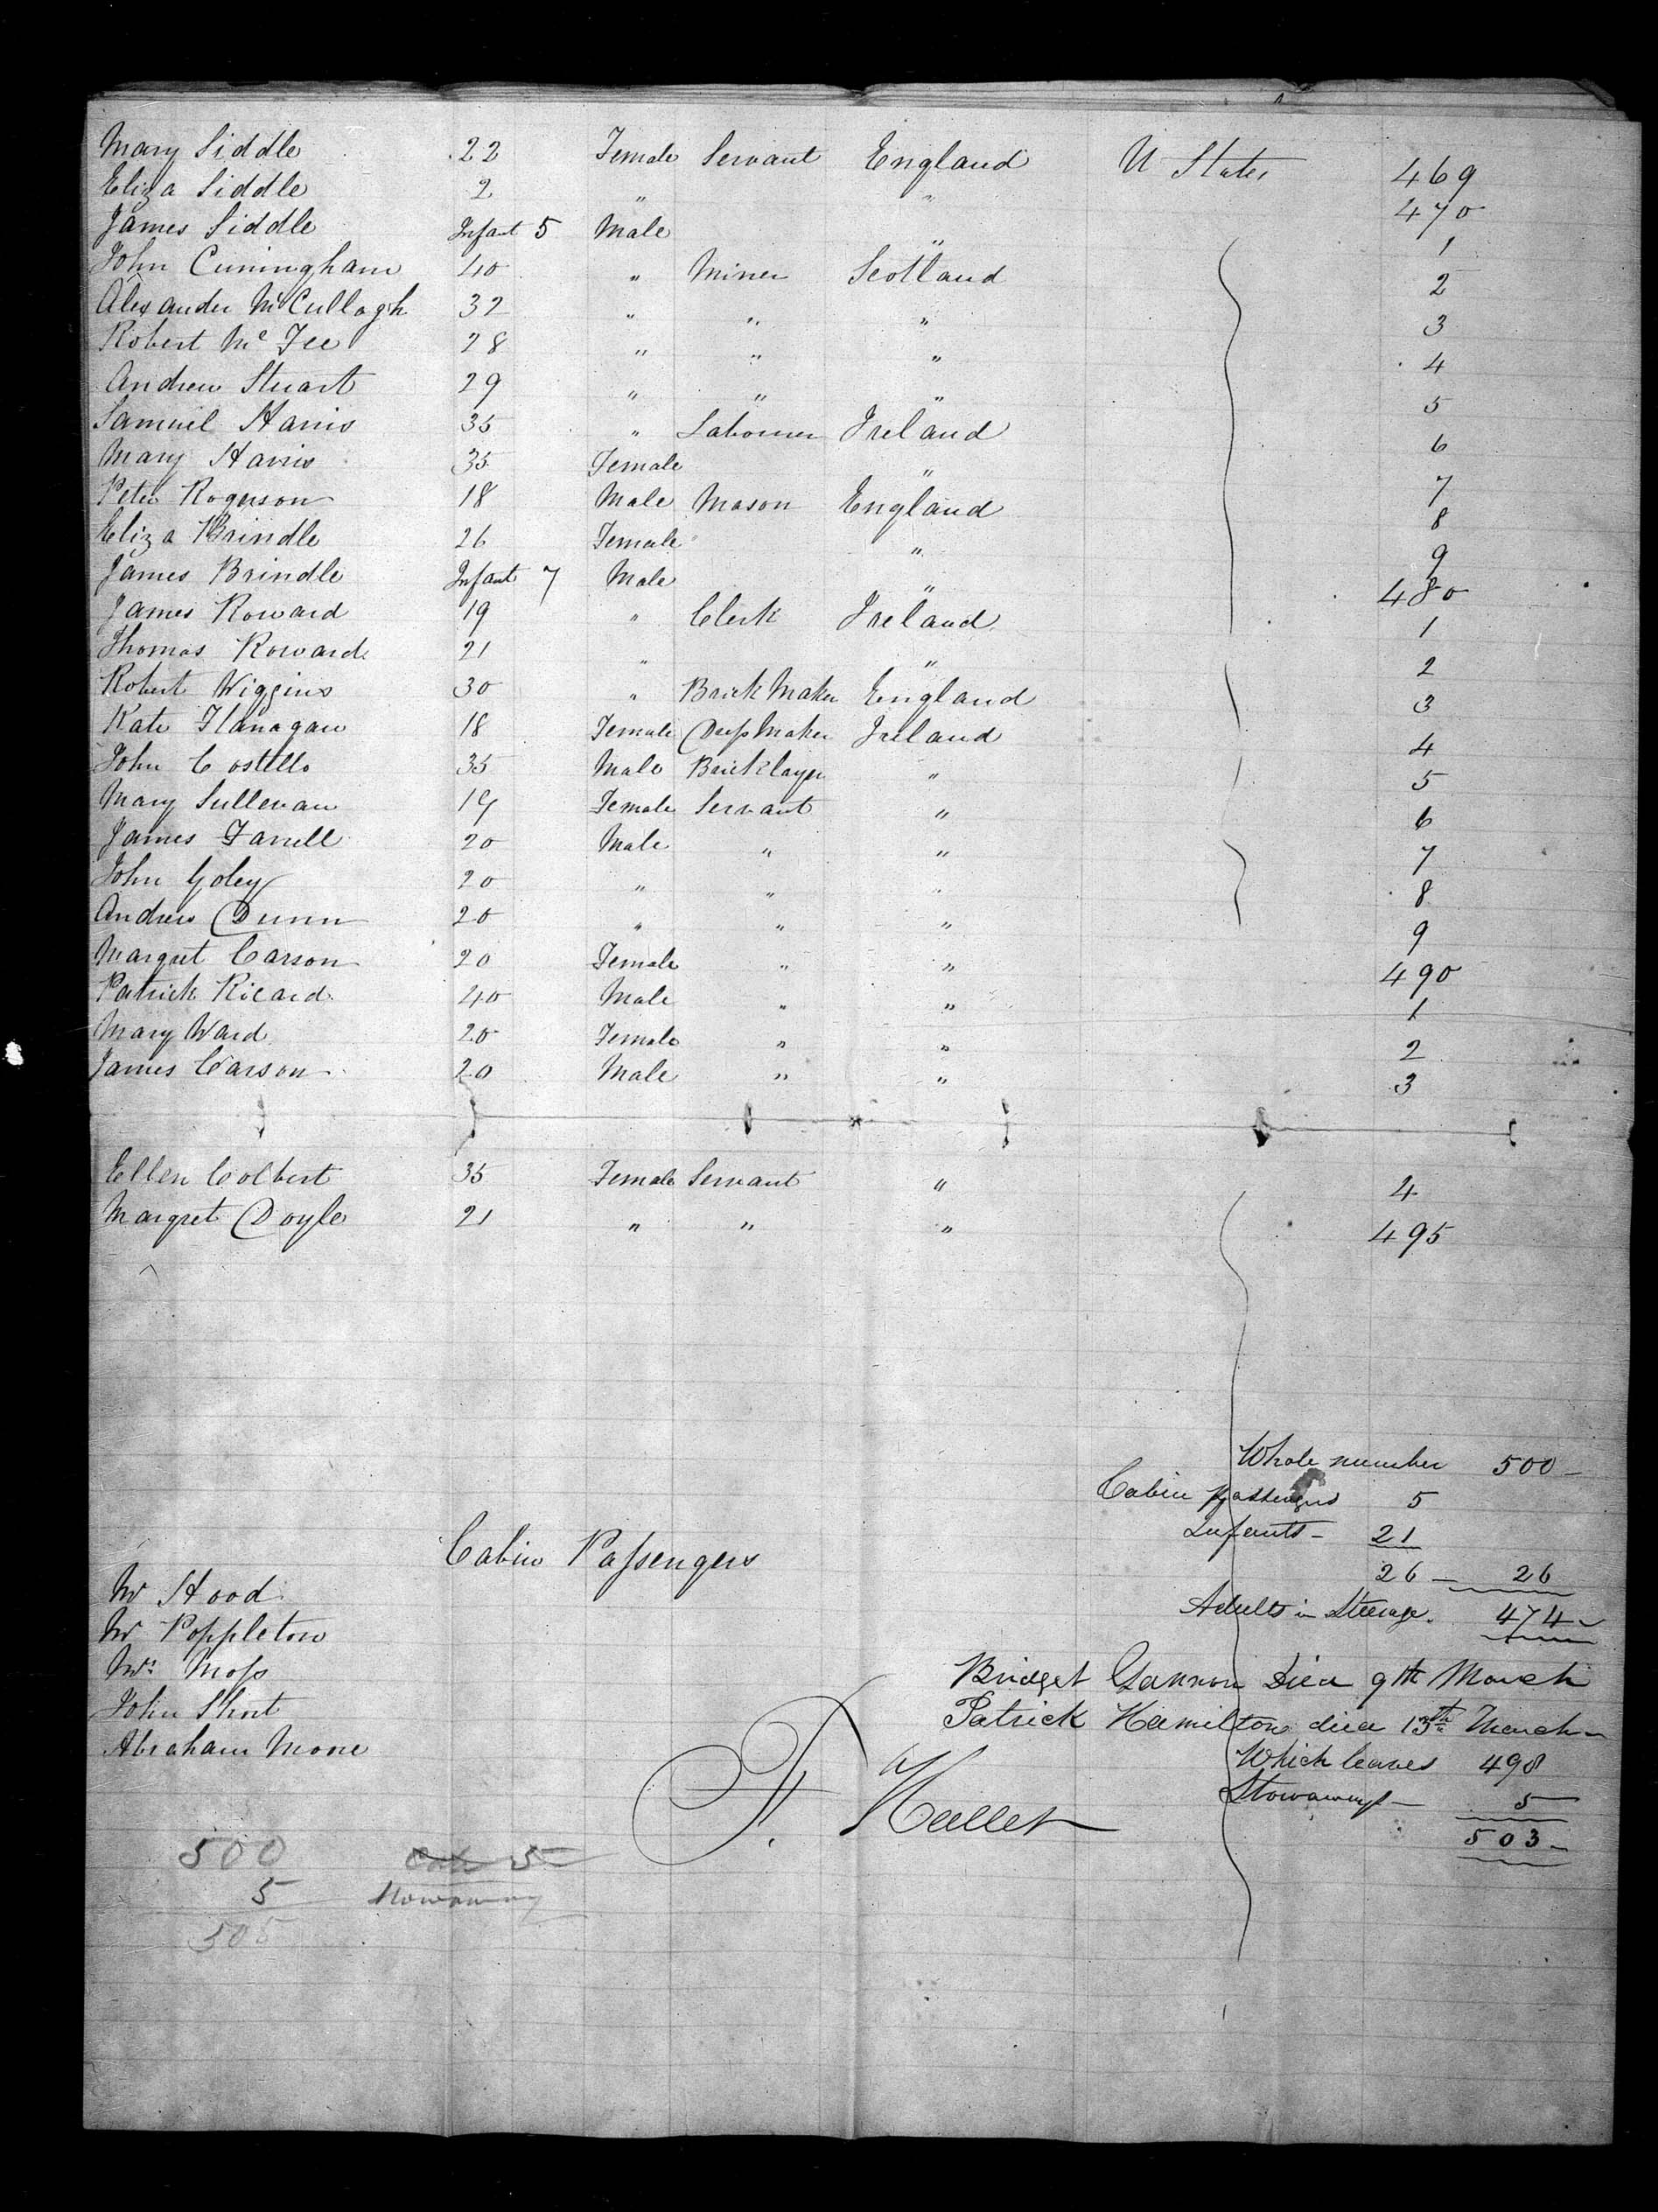 Mary Siddle 22 Female Servant England U States 469
Eliza Siddle 2 " " 470
James Siddle Infant 5 Male " 1
John Cuningham 40 " Miner Scotland 2
Alexander McCullogh 32 " " " 3
Robert Mc Fee 28 " " " 4
Andrew Stuart 29 " " " 5
Samuel Harris 35 " Labourer Ireland 6
Mary Harris 35 Female " 7
Peter Rogerson 18 Male Mason England 8
Eliza Brindle 26 Female " 9
James Brindle Infant 7 Male " 480
James Roward 19 " Clerk Ireland 1
Thomas Roward 21 " " 2
Robert Wiggins 30 " Brick Maker England 3
Kate Flanagan 18 Female Dress Maker Ireland 4
John Costello 35 Male Bricklayer " 5
Mary Sullevan 19 Female Servant " 6
James Farrell 20 Male " " 7
John Goley 20 " " " 8
Andrew Dunn 20 " " " 9
Margret Carson 20 Female " " 490
Patrick Ricard 40 Male " " 1
Mary Ward 20 Female " " 2
James Carson 20 Male " " 3
Ellen Colbert 35 Female Servant " 4
Margret Doyle 21 " " " 495
Whole number 500
Cabin Passengers 5
Infants 21
26 26
Adults in Steerage 474
Cabin Passengers
Mr Hood
Mr Poppleton
Mrs Moss
John Short
Abraham Moore
Bridget Gannon Died 9th March
Patrick Hamilton died 13th March
Which leaves 498
Stowaways 5
503
F. Hallet
500
5 Stowaway
505